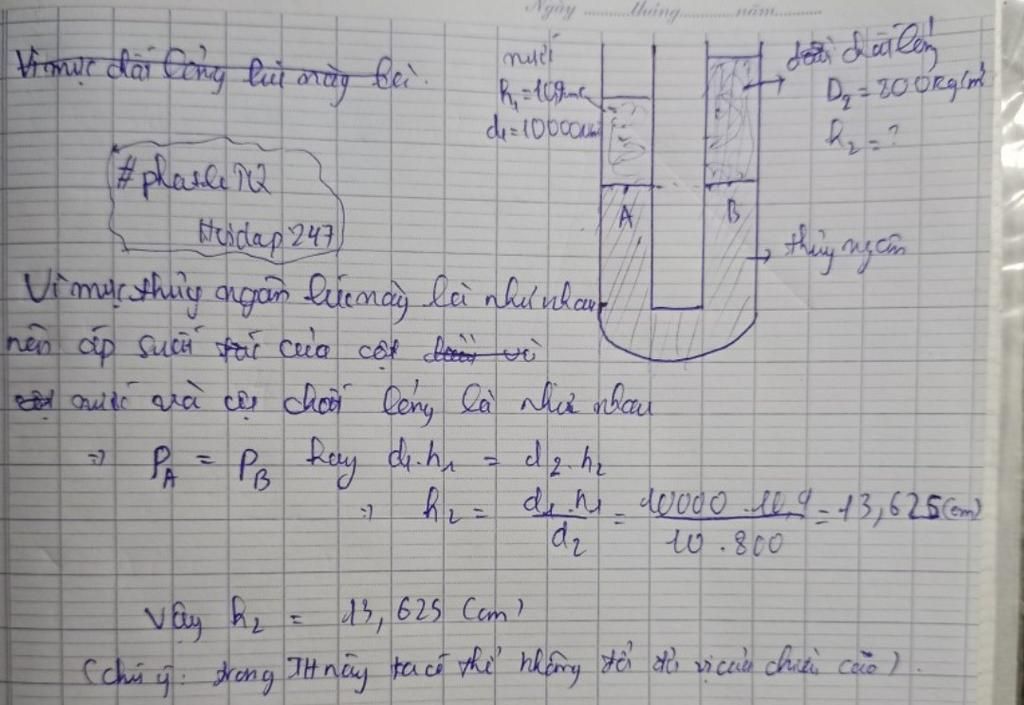 Ngày ........ tháng ........ năm ........
Vì mực chất lỏng lúc này là
nước
h₁ = 10,9cm
d₁ = 10000
dầu chất lỏng
D₂ = 800kg/m³
h₂ = ?
A
B
thủy ngân
#phasleTV2
Hoidap247
Vì mực thủy ngân lúc này là như nhau
nên áp suất của cột
nước và cột chất lỏng là như nhau
=> P_A = P_B hay d₁.h₁ = d₂.h₂
=> h₂ = d₁.h₁ / d₂ = 10000.10,9 / 10.800 = 13,625 (cm)
Vậy h₂ = 13,625 (cm)
(chú ý: trong TH này ta có thể không đổi đơn vị của chiều cao).